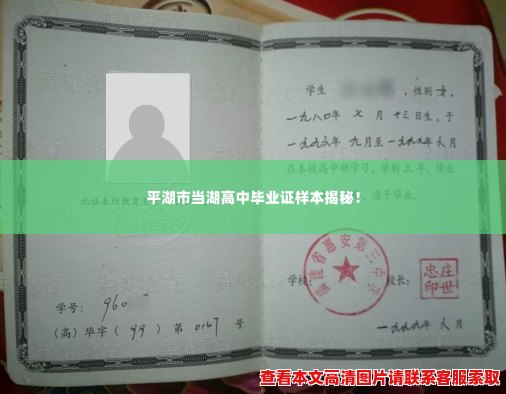 学生 ，性别 女，
一九八〇年 七 月 十三日生，于
一九九六年 九月至一九九九年六月
在本校高中部学习，学制三年，修业
此证未经教育
平湖市当湖高中毕业证样本揭秘！
准予毕业。
福建省惠安第三中学
学校
校长：
庄世忠印
学号： 960
（高）毕字（ 99 ）第 0147 号
一九九九年 六 月
查看本文高清图片请联系客服索取